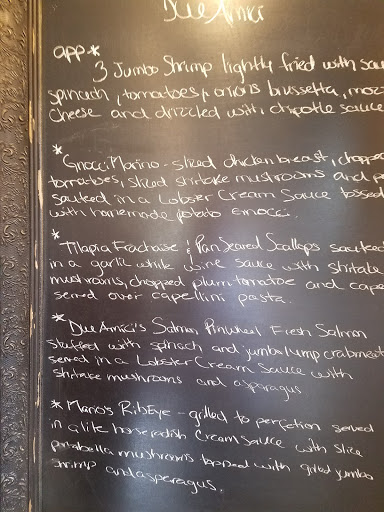 Due Amici
app-*
3 Jumbo Shrimp lightly fried with sau
spinach, tomatoes, onions brussetta, moz
cheese and drizzled with chipotle sauce
*
Gnocci Marino - sliced chicken breast, chopped
tomatoes, sliced shitake mushrooms and p
sautéed in a Lobster Cream Sauce tossed
with homemade potato Gnocci.
*
Tilapia Francaise & Pan Seared Scallops sauteed
in a garlic white wine sauce with shitake
mushrooms, chopped plum tomatoe and cape
served over capellini pasta.
* Due Amici's Salmon Pinwheel Fresh Salmon
stuffed with spinach and jumbo lump crabmeat
served in a Lobster Cream Sauce with
shitake mushrooms and asparagus
* Mario's RibEye - grilled to perfection served
in a lite horseradish cream sauce with slice
portabella mushrooms topped with grilled jumbo
shrimp and asparagus.